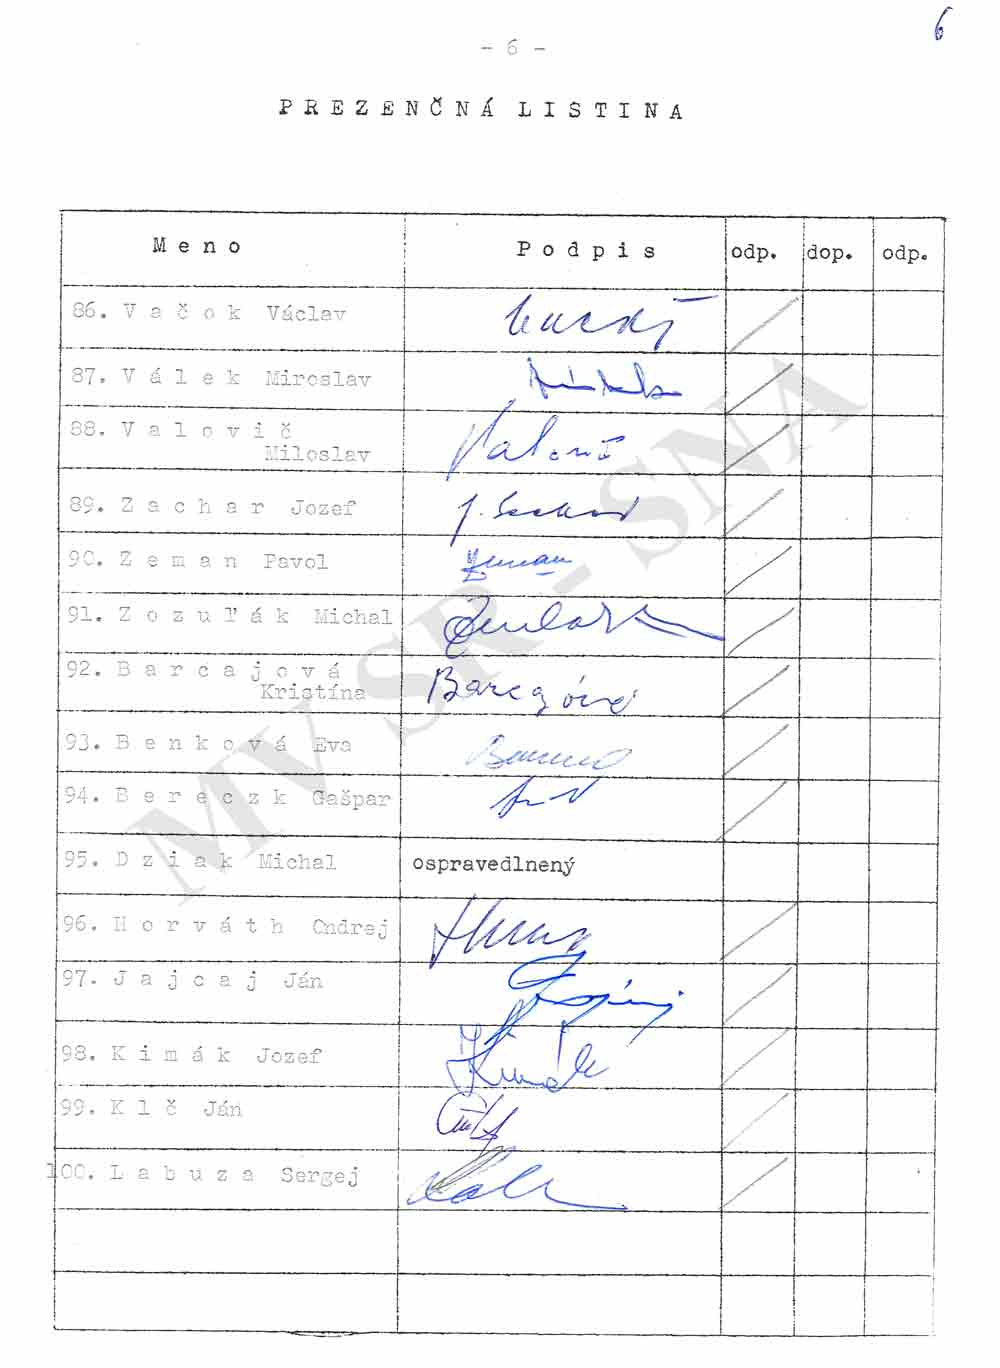 6
- 6 -
PREZENČNÁ LISTINA
Meno Podpis odp. dop. odp.
86. Vačok Václav
87. Válek Miroslav
88. Valovič
Miloslav
89. Zachar Jozef
90. Zeman Pavol
Zeman
91. Zozuľák Michal
92. Barcajová
Kristína
93. Benková Eva
94. Bereczk Gašpar
95. Dziak Michal ospravedlnený
96. Horváth Ondrej
97. Jajcaj Ján
98. Kimák Jozef
Kimák
99. Klč Ján
100. Labuza Sergej
MV SR - SNA